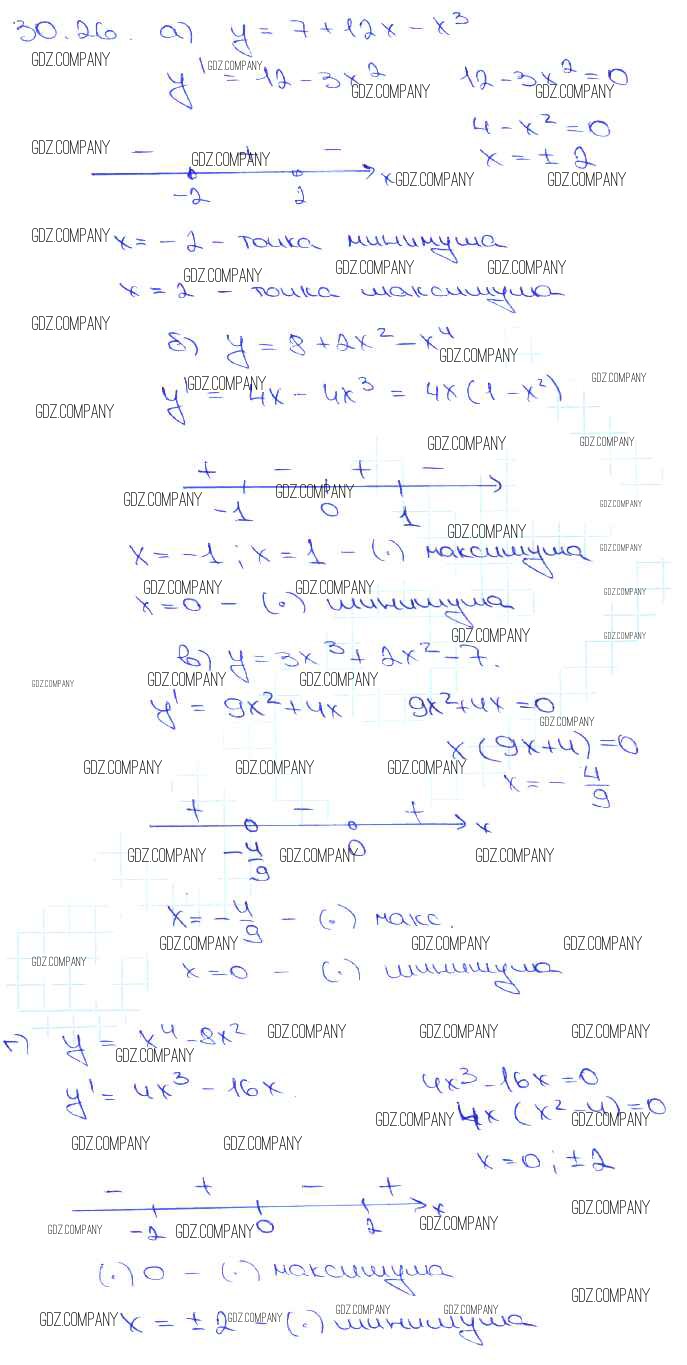 30.26. а) y = 7 + 12x - x³
GDZ.COMPANY GDZ.COMPANY
y' = 12 - 3x² 12 - 3x² = 0
GDZ.COMPANY GDZ.COMPANY
4 - x² = 0
GDZ.COMPANY - + - x = ± 2
GDZ.COMPANY
x GDZ.COMPANY GDZ.COMPANY
-2 2
GDZ.COMPANY x = -2 - точка минимума
GDZ.COMPANY GDZ.COMPANY GDZ.COMPANY
x = 2 - точка максимума
GDZ.COMPANY
б) y = 8 + 2x² - x⁴
GDZ.COMPANY
GDZ.COMPANY GDZ.COMPANY
y' = 4x - 4x³ = 4x(1 - x²)
GDZ.COMPANY
GDZ.COMPANY GDZ.COMPANY
+ - + -
GDZ.COMPANY GDZ.COMPANY GDZ.COMPANY
-1 0 1
GDZ.COMPANY
x = -1; x = 1 - (.) максимума GDZ.COMPANY
GDZ.COMPANY GDZ.COMPANY GDZ.COMPANY
x = 0 - (.) минимума
GDZ.COMPANY GDZ.COMPANY
в) y = 3x³ + 2x² - 7.
GDZ.COMPANY GDZ.COMPANY GDZ.COMPANY
y' = 9x² + 4x 9x² + 4x = 0
GDZ.COMPANY
x(9x + 4) = 0
GDZ.COMPANY GDZ.COMPANY GDZ.COMPANY
x = - 4/9
+ - +
x
GDZ.COMPANY -4/9 GDZ.COMPANY 0 GDZ.COMPANY
x = -4/9 - (.) макс.
GDZ.COMPANY GDZ.COMPANY GDZ.COMPANY
GDZ.COMPANY x = 0 - (.) минимума
г) y = x⁴ - 8x² GDZ.COMPANY GDZ.COMPANY GDZ.COMPANY
GDZ.COMPANY
y' = 4x³ - 16x. 4x³ - 16x = 0
4x(x² - 4) = 0
GDZ.COMPANY GDZ.COMPANY
GDZ.COMPANY GDZ.COMPANY
x = 0; ±2
- + - +
x GDZ.COMPANY
GDZ.COMPANY -2 GDZ.COMPANY 0 2 GDZ.COMPANY
(.) 0 - (.) максимума
GDZ.COMPANY
GDZ.COMPANY GDZ.COMPANY GDZ.COMPANY GDZ.COMPANY
x = ±2 - (.) минимума